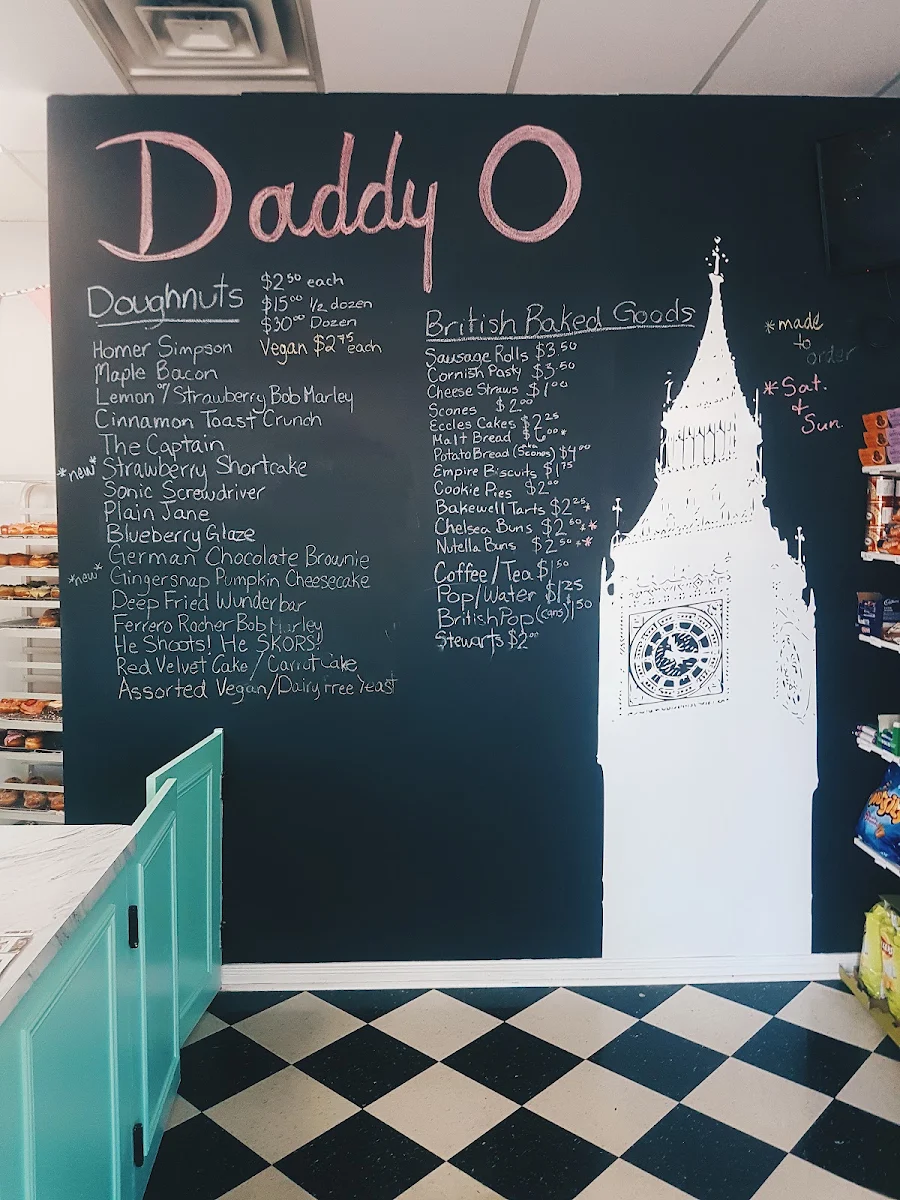 Daddy O
Doughnuts
$2.50 each
$15.00 1/2 dozen
$30.00 Dozen
Vegan $2.75 each
Homer Simpson
Maple Bacon
Lemon w/ Strawberry Bob Marley
Cinnamon Toast Crunch
The Captain
*new* Strawberry Shortcake
Sonic Screwdriver
Plain Jane
Blueberry Glaze
German Chocolate Brownie
*new* Gingersnap Pumpkin Cheesecake
Deep Fried Wunderbar
Ferrero Rocher Bob Marley
He Shoots! He SKORS!
Red Velvet Cake / Carrot Cake
Assorted Vegan/Dairy Free Yeast
British Baked Goods
Sausage Rolls $3.50
Cornish Pasty $3.50
Cheese Straws $1.00
Scones $2.00
Eccles Cakes $2.25
Malt Bread $6.00*
Potato Bread (Scones) $4.00
Empire Biscuits $1.75
Cookie Pies $2.00
Bakewell Tarts $2.25*
Chelsea Buns $2.50**
Nutella Buns $2.50**
Coffee/Tea $1.50
Pop/Water $1.25
British Pop (cans) 1.50
Stewarts $2.00
*made
to
order
*Sat.
&
Sun.